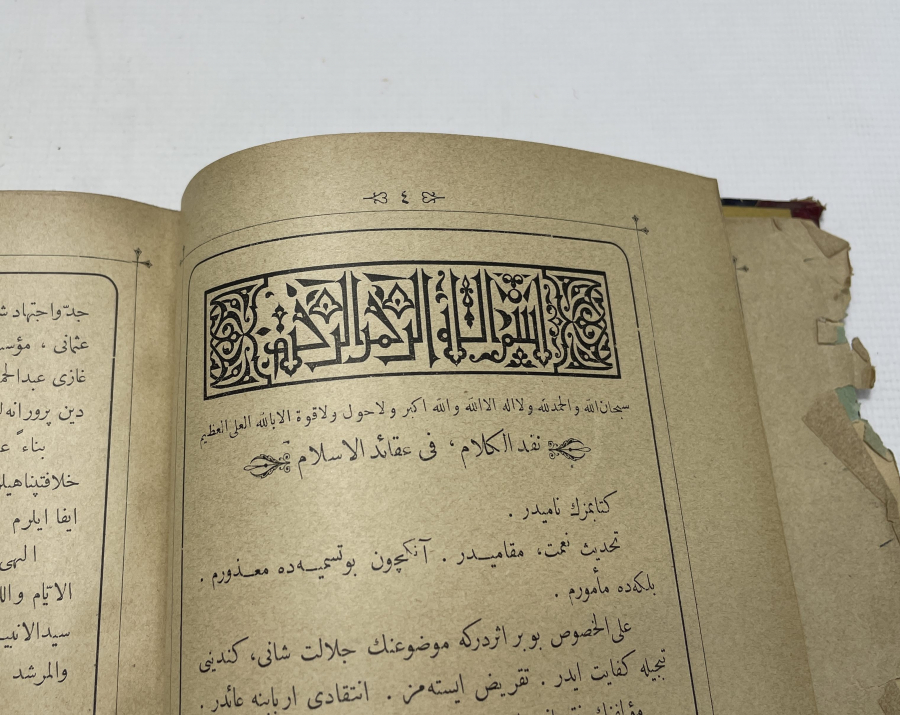 ٤
بسم الله الرحمن الرحيم
سبحان الله والحمدلله ولا اله الا الله والله اكبر ولا حول ولا قوة الا بالله العلى العظيم
نقد الكلام ، فى عقائد الاسلام
كتابمزك ناميدر .
تحديث نعمت، مقاميــدر . آنكچون بوتسميــه‌ده معــذورم .
بلكه‌ده مأمورم .
على الخصوص بو بر اثردركه موضوعنك جلالت شانى، كندينى
تبجيله كفايت ايدر . تقريض ايسته‌مز . انتقادى اربابنه عائدر .
جدّ واجتهاد
عثمانى ، مؤسـ
غازى عبدالحمـ
دين پرورانه‌
بناءً
خلافتپناهيلر
ايفا ايلرم
الهى
الايّام والل
سيدالانبيـ
والمرشد